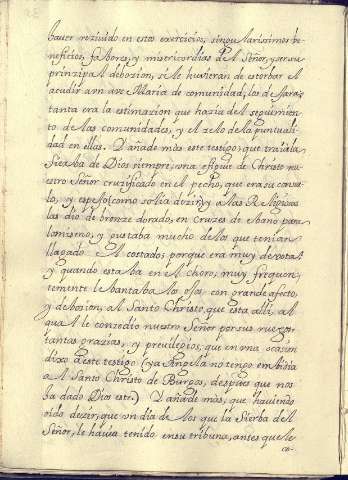 hauer reziuido en estos exercicios, singularissimos be-
neficios, fabores, y misericordias del Señor, y ser su
prinzipal debozion, si le huvieran de estorbar el
acudir a un ave Maria de comunidad, los dejara;
tanta era la estimazion que hazia del seguimien-
to de las comunidades, y el zelo de la puntuali-
dad en ellas. Dañade mas este testigo, que traia la
Sierba de Dios siempre, una efigie de Christo nu-
estro Señor cruzificado en el pecho, que era su caua-
llo, y espejo (como solia dezir) y a las Religiosas
las dio de bronze dorado, en cruzes de ebano para
lo mismo, y gustaba mucho de los que tenian
llagado el costado, porque era muy devota;
y quando estaba en el choro, muy frequen-
temente lebantaba los ojos con grande afecto,
y debosion, al Santo Christo, que esta alli, al
qual le conzedio nuestro Señor por sus ruegos,
tantas grazias, y previlegios, que en una ocasion
dixo a este testigo (ya Angela no tengo embidia
al Santo Christo de Burgos, despues que nos
ha dado Dios este.) Dañade mas, que haviendo
oido dezir, que un dia de los que la Sierba del
Señor, le havia tenido en su tribuna, antes que le
co-